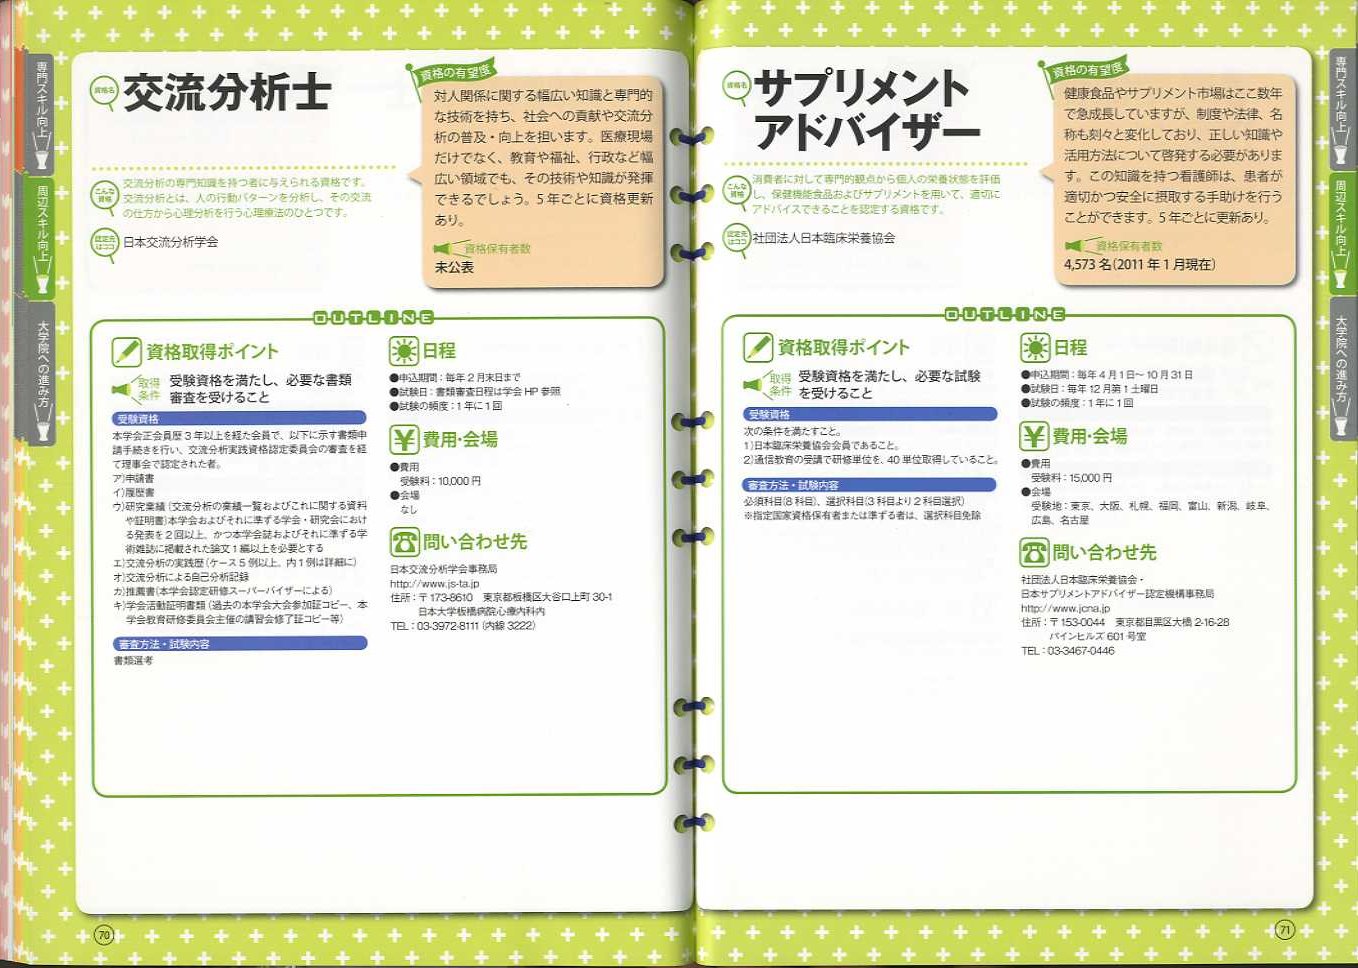 専門スキル向上
周辺スキル向上
大学院への進み方
資格名
交流分析士
こんな
資格
交流分析の専門知識を持つ者に与えられる資格です。
交流分析とは、人の行動パターンを分析し、その交流
の仕方から心理分析を行う心理療法のひとつです。
認定元
はココ
日本交流分析学会
資格の有望度
対人関係に関する幅広い知識と専門的
な技術を持ち、社会への貢献や交流分
析の普及・向上を担います。医療現場
だけでなく、教育や福祉、行政など幅
広い領域でも、その技術や知識が発揮
できるでしょう。5年ごとに資格更新
あり。
資格保有者数
未公表
OUTLINE
資格取得ポイント
取得
条件
受験資格を満たし、必要な書類
審査を受けること
受験資格
本学会正会員歴3年以上を経た会員で、以下に示す書類申
請手続きを行い、交流分析実践資格認定委員会の審査を経
て理事会で認定された者。
ア)申請書
イ)履歴書
ウ)研究業績(交流分析の業績一覧およびこれに関する資料
や証明書)本学会およびそれに準ずる学会・研究会におけ
る発表を2回以上、かつ本学会誌およびそれに準ずる学
術雑誌に掲載された論文1編以上を必要とする
エ)交流分析の実践歴(ケース5例以上、内1例は詳細に)
オ)交流分析による自己分析記録
カ)推薦書(本学会認定研修スーパーバイザーによる)
キ)学会活動証明書類(過去の本学会大会参加証コピー、本
学会教育研修委員会主催の講習会修了証コピー等)
審査方法・試験内容
書類選考
日程
●申込期間:毎年2月末日まで
●試験日:書類審査日程は学会HP参照
●試験の頻度:1年に1回
費用・会場
●費用
受験料:10,000円
●会場
なし
問い合わせ先
日本交流分析学会事務局
http://www.js-ta.jp
住所:〒173-8610 東京都板橋区大谷口上町30-1
日本大学板橋病院心療内科内
TEL:03-3972-8111(内線3222)
70
資格名
サプリメント
アドバイザー
こんな
資格
消費者に対して専門的観点から個人の栄養状態を評価
し、保健機能食品およびサプリメントを用いて、適切に
アドバイスできることを認定する資格です。
認定元
はココ
社団法人日本臨床栄養協会
資格の有望度
健康食品やサプリメント市場はここ数年
で急成長していますが、制度や法律、名
称も刻々と変化しており、正しい知識や
活用方法について啓発する必要がありま
す。この知識を持つ看護師は、患者が
適切かつ安全に摂取する手助けを行う
ことができます。5年ごとに更新あり。
資格保有者数
4,573名(2011年1月現在)
OUTLINE
資格取得ポイント
取得
条件
受験資格を満たし、必要な試験
を受けること
受験資格
次の条件を満たすこと。
1)日本臨床栄養協会会員であること。
2)通信教育の受講で研修単位を、40単位取得していること。
審査方法・試験内容
必須科目(8科目)、選択科目(3科目より2科目選択)
※指定国家資格保有者または準ずる者は、選択科目免除
日程
●申込期間:毎年4月1日～10月31日
●試験日:毎年12月第1土曜日
●試験の頻度:1年に1回
費用・会場
●費用
受験料:15,000円
●会場
受験地:東京、大阪、札幌、福岡、富山、新潟、岐阜、
広島、名古屋
問い合わせ先
社団法人日本臨床栄養協会・
日本サプリメントアドバイザー認定機構事務局
http://www.jcna.jp
住所:〒153-0044 東京都目黒区大橋2-16-28
パインヒルズ601号室
TEL:03-3467-0446
専門スキル向上
周辺スキル向上
大学院への進み方
71